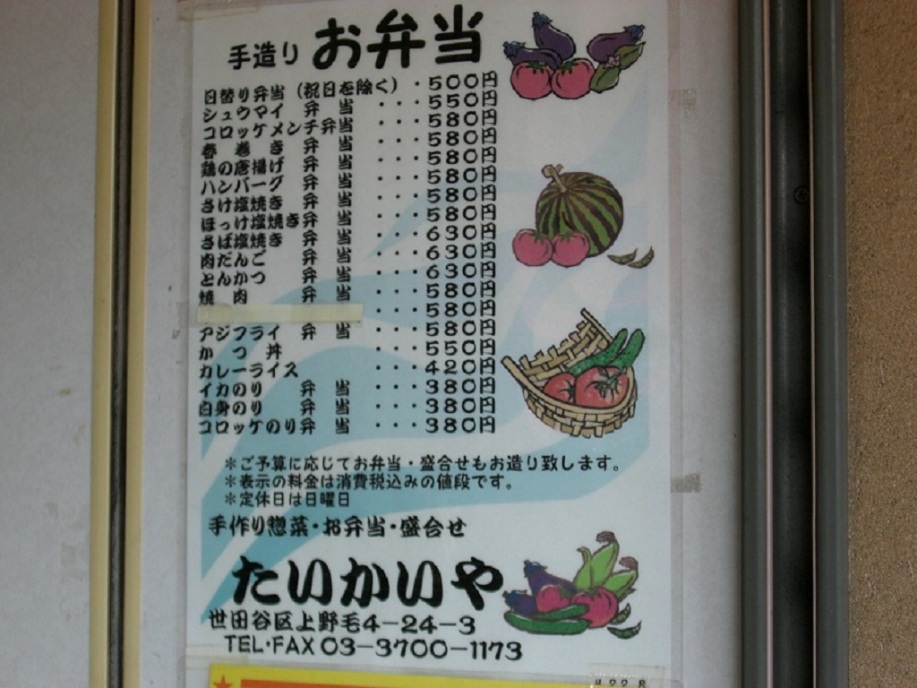 手造り お弁当
日替り弁当（祝日を除く）・500円
シュウマイ 弁 当 ・・・550円
コロッケメンチ弁当 ・・・580円
春 巻 き 弁 当 ・・・580円
鶏の唐揚げ 弁 当 ・・・580円
ハンバーグ 弁 当 ・・・580円
さけ塩焼き 弁 当 ・・・580円
ほっけ塩焼き弁 当 ・・・580円
さば塩焼き 弁 当 ・・・630円
肉だんご 弁 当 ・・・630円
とんかつ 弁 当 ・・・630円
焼 肉 弁 当 ・・・580円
・・・580円
アジフライ 弁 当 ・・・580円
か つ 丼 ・・・550円
カレーライス ・・・420円
イカのり 弁 当 ・・・380円
白身のり 弁 当 ・・・380円
コロッケのり弁 当 ・・・380円
＊ご予算に応じてお弁当・盛合せもお造り致します。
＊表示の料金は消費税込みの値段です。
＊定休日は日曜日
手作り惣菜・お弁当・盛合せ
たいかいや
世田谷区上野毛4－24－3
TEL・FAX 03－3700－1173